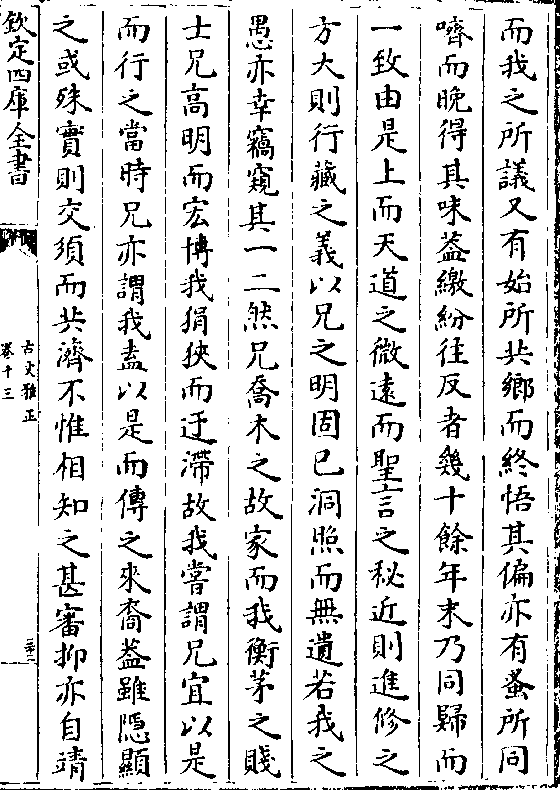 而我之所議又有始所共鄉而終悟其偏亦有蚤所同
嚌而晚得其味葢繳紛往反者幾十餘年末乃同歸而
一致由是上而天道之微遠而聖言之秘近則進修之
方大則行藏之義以兄之明固已洞照而無遺若我之
愚亦幸竊窺其一二然兄喬木之故家而我衡茅之賤
士兄高明而宏博我狷狹而迂滯故我嘗謂兄宜以是
而行之當時兄亦謂我盍以是而傳之來裔葢雖隱顯
之或殊實則交須而共濟不惟相知之甚審抑亦自靖
欽定四庫全書
古文雅正
卷十三